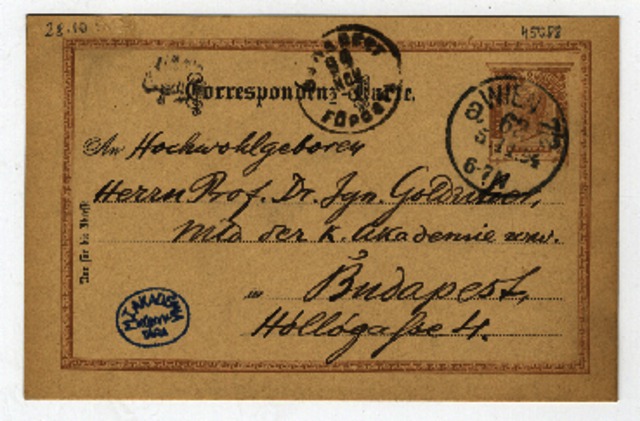 28.10
Correspondenz-Karte.
BUDAPEST
NOV
FŐPOSTA
WIEN
6-7N
An Hochwohlgeboren
Herrn Prof. Dr. Ign. Goldziher,
Mtd der k. Akademie usw.
in Budapest,
Hollógasse 4.
Nur für die Adresse
M.T. AKADÉMIA
KÖNYVTÁRA